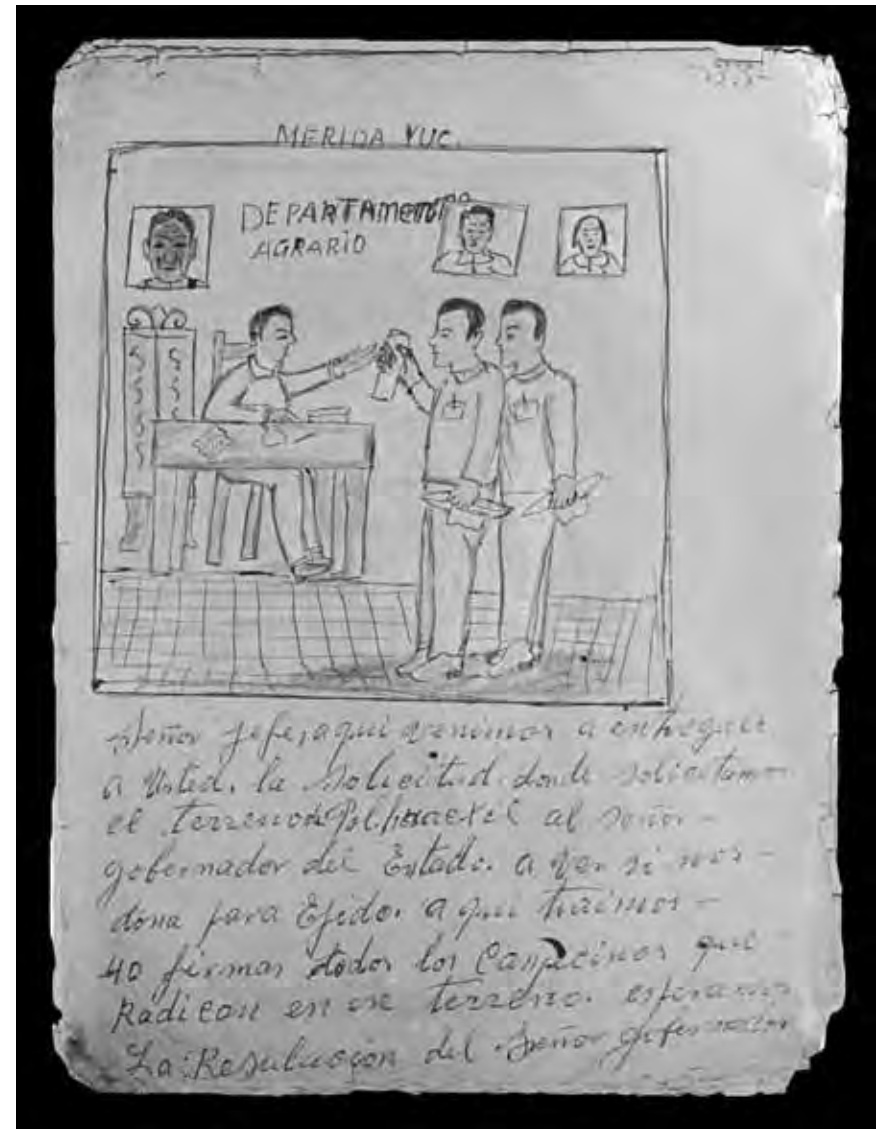 MERIDA YUC.
DEPARTAMENTO
AGRARIO
Señor jefe, aqui venimos a entregar
a Usted. la Solicitud donde solicitamos
el terreno al señor
gobernador del Estado. a ver si nos
dona para Ejido. aqui traimos
40 firmas todos los Campecinos que
Radican en ese terreno. esperamos
La Resulucion del Señor gobernador